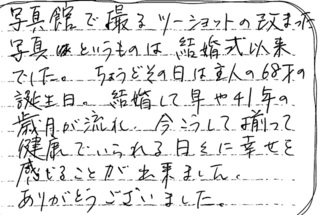 写真館で撮るツーショットの改まった
写真はというものは、結婚式以来
でした。ちょうどその日は主人の68才の
誕生日。結婚して早や41年の
歳月が流れ、今こうして揃って
健康でいられる日々に幸せを
感じることが出来ました。
ありがとうございました。